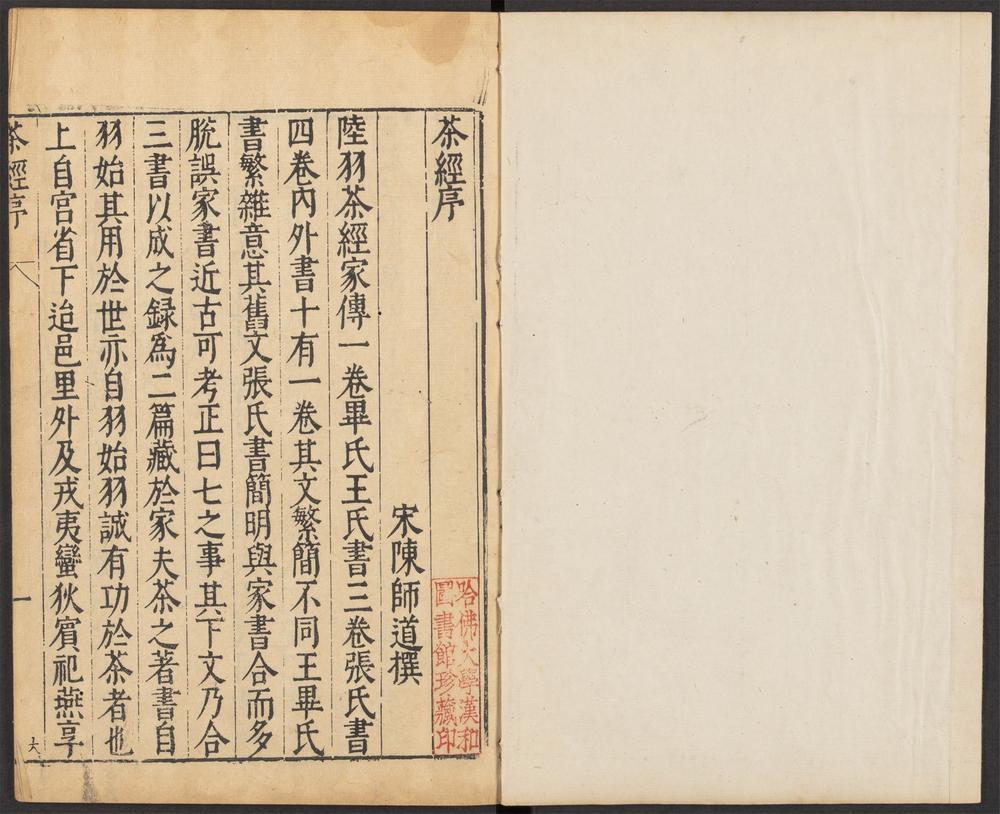 茶經序
宋陳師道撰
陸羽茶經家傳一卷畢氏王氏書三卷張氏書
四卷內外書十有一卷其文繁簡不同王畢氏
書繁雜意其舊文張氏書簡明與家書合而多
脫誤家書近古可考正曰七之事其下文乃合
三書以成之録爲二篇藏於家夫茶之著書自
羽始其用於世亦自羽始羽誠有功於茶者也
上自宮省下迨邑里外及戎夷蠻狄賓祀燕享
茶經序
一
大
哈佛大學漢和
圖書館珍藏印